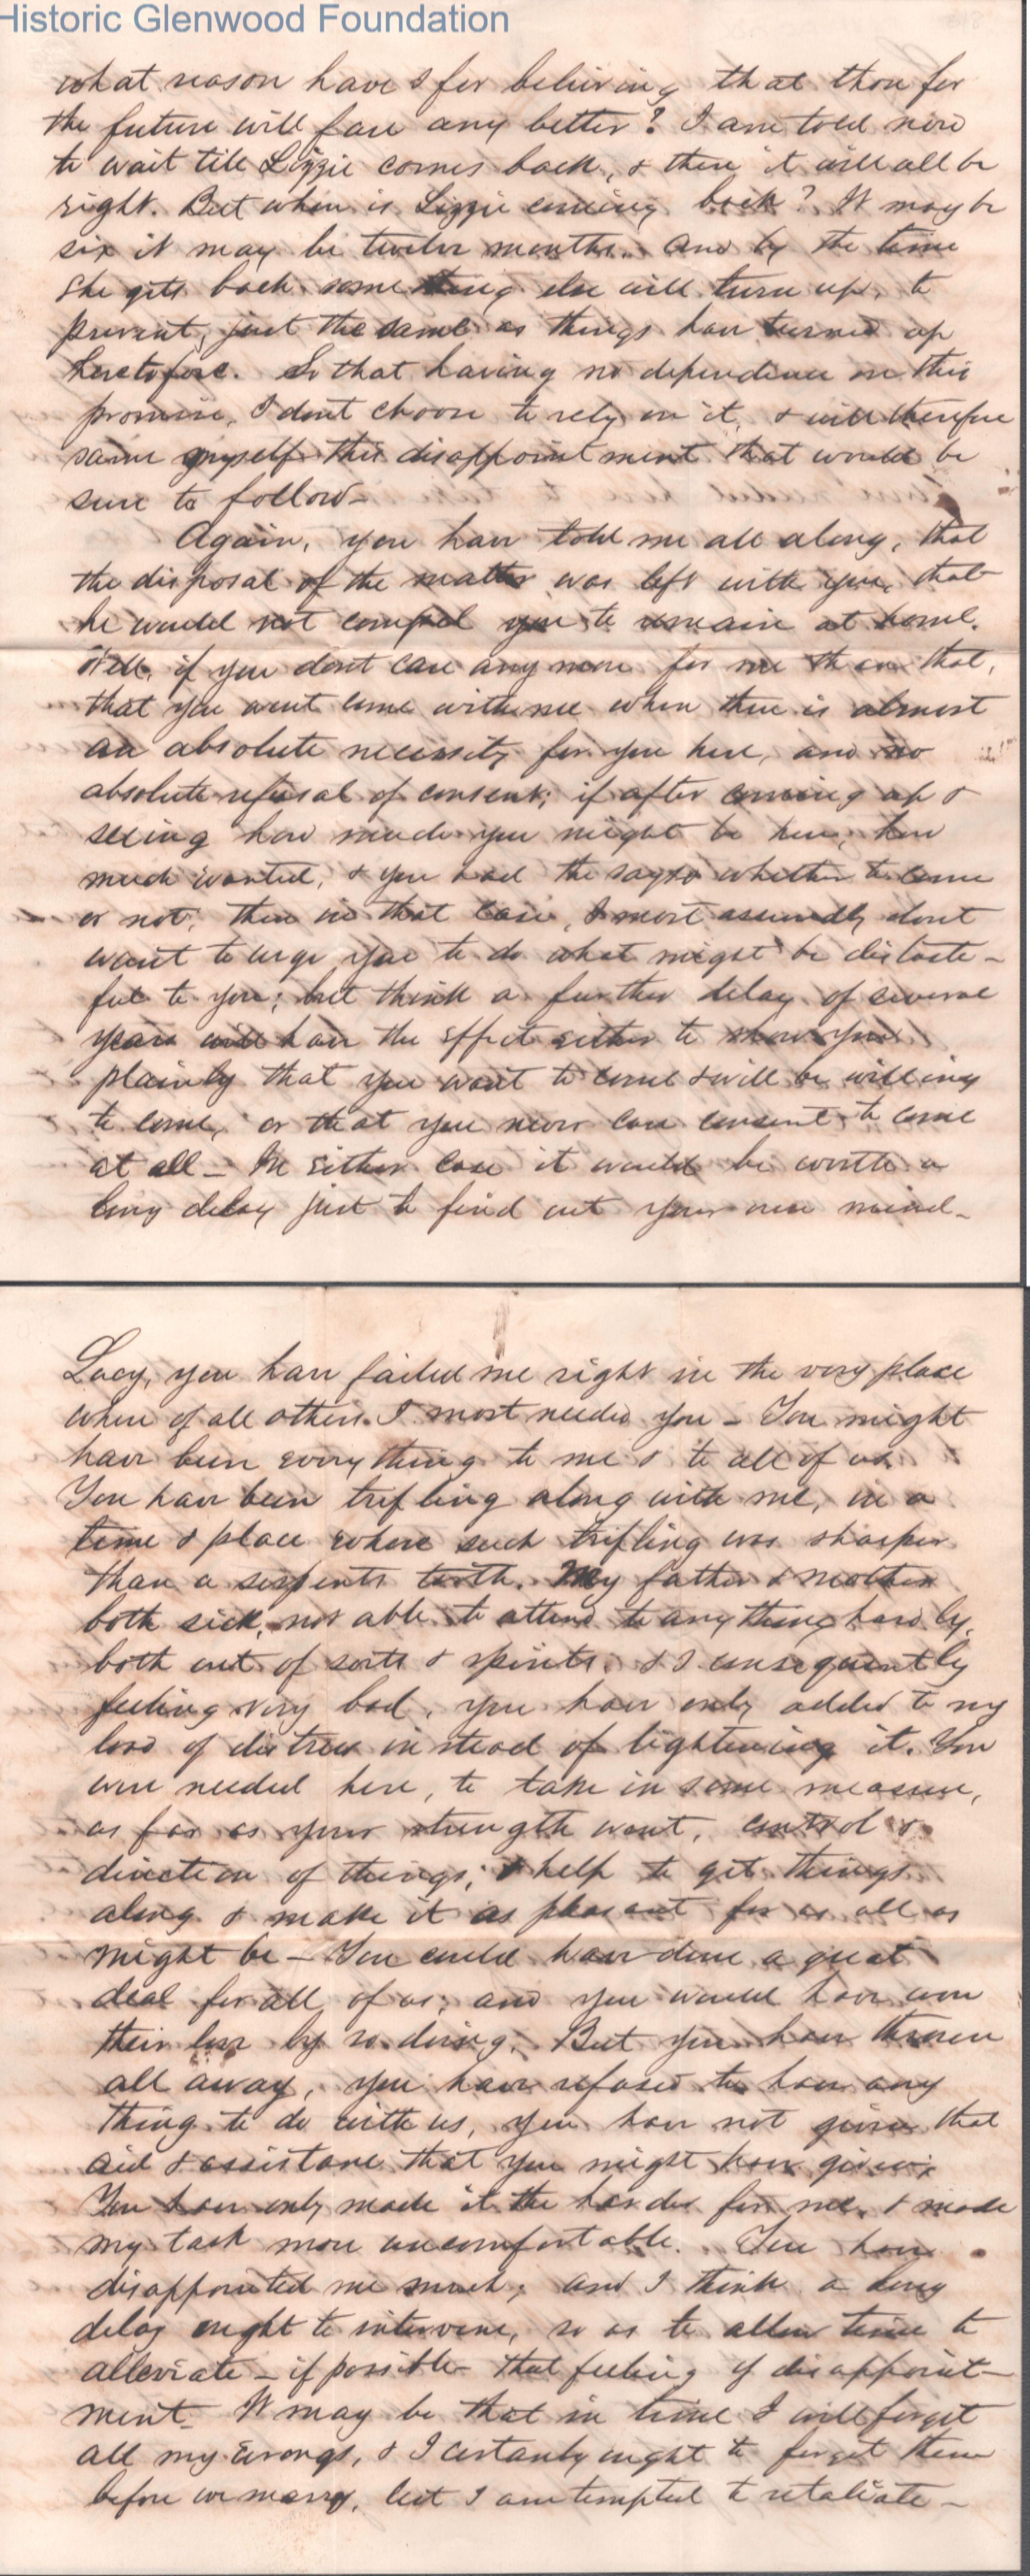 Historic Glenwood Foundation
what reason have I for believing that thou for
the future will fare any better? I am told now
to wait till Lizzie comes back, & then it will all be
right. But when is Lizzie coming back? It may be
six it may be twelve months. And by the time
she gets back something else will turn up, to
prevent, just the same as things have turned up
heretofore. So that having no dependence on this
promise, I dont choose to rely on it, & will therefore
save myself this disappointment that would be
sure to follow—
Again, you have told me all along, that
the disposal of the matter was left with you, that
he would not compel you to remain at home.
Well, if you dont care any more for me than that,
that you wont come with me when there is almost
an absolute necessity for you here, and no
absolute refusal of consent; if after coming up &
seeing how much you might be here, how
much wanted, & you had the sayso whether to come
or not; then in that case, I most assuredly dont
want to urge you to do what might be distaste-
ful to you; but think a further delay of several
years will have the effect either to show you
plainly that you want to come & will be willing
to come, or that you never can consent to come
at all— In either case it would be worth a
long delay just to find out your own mind—
Lucy, you have failed me right in the very place
where of all others I most needed you— You might
have been everything to me & to all of us.
You have been trifling along with me, in a
time & place where such trifling was sharper
than a serpents tooth. My father & mother
both sick, not able to attend to anything hardly,
both out of sorts & spirits, & I consequently
feeling very bad, you have only added to my
load of distress instead of lightening it. You
were needed here, to take in some measure,
as far as your strength went, control &
direction of things; & help to get things
along & make it as pleasant for us all as
might be— You could have done a great
deal for all of us; and you would have won
their love by so doing. But you have thrown
all away, you have refused to have any
thing to do with us, you have not given that
aid & assistance that you might have given;
You have only made it the harder for me, & made
my task more uncomfortable. You have
disappointed me much; and I think a long
delay ought to intervene, so as to allow time to
alleviate—if possible—that feeling of disappoint-
ment— It may be that in time I will forget
all my wrongs, & I certainly ought to forget them
before we marry, but I am tempted to retaliate—